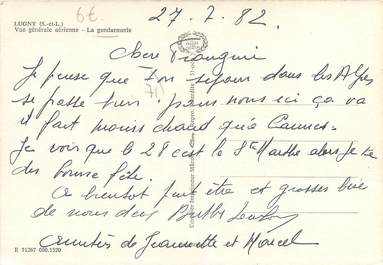 LUGNY (S.-et-L.)
6€
27.7.82
Vue générale aérienne - La gendarmerie
Chère Françine
Je pense que ton sejour dans les Alpes
se passe bien. pour nous ici ça va
il fait moins chaud qu'à Cannes.
Je vois que le 28 c'est la Ste Marthe alors je te
des bonne fête.
A bientot peut être et grosses bise
de nous deux
amitiés de Jeannette et Marcel
E 71267 000.1520